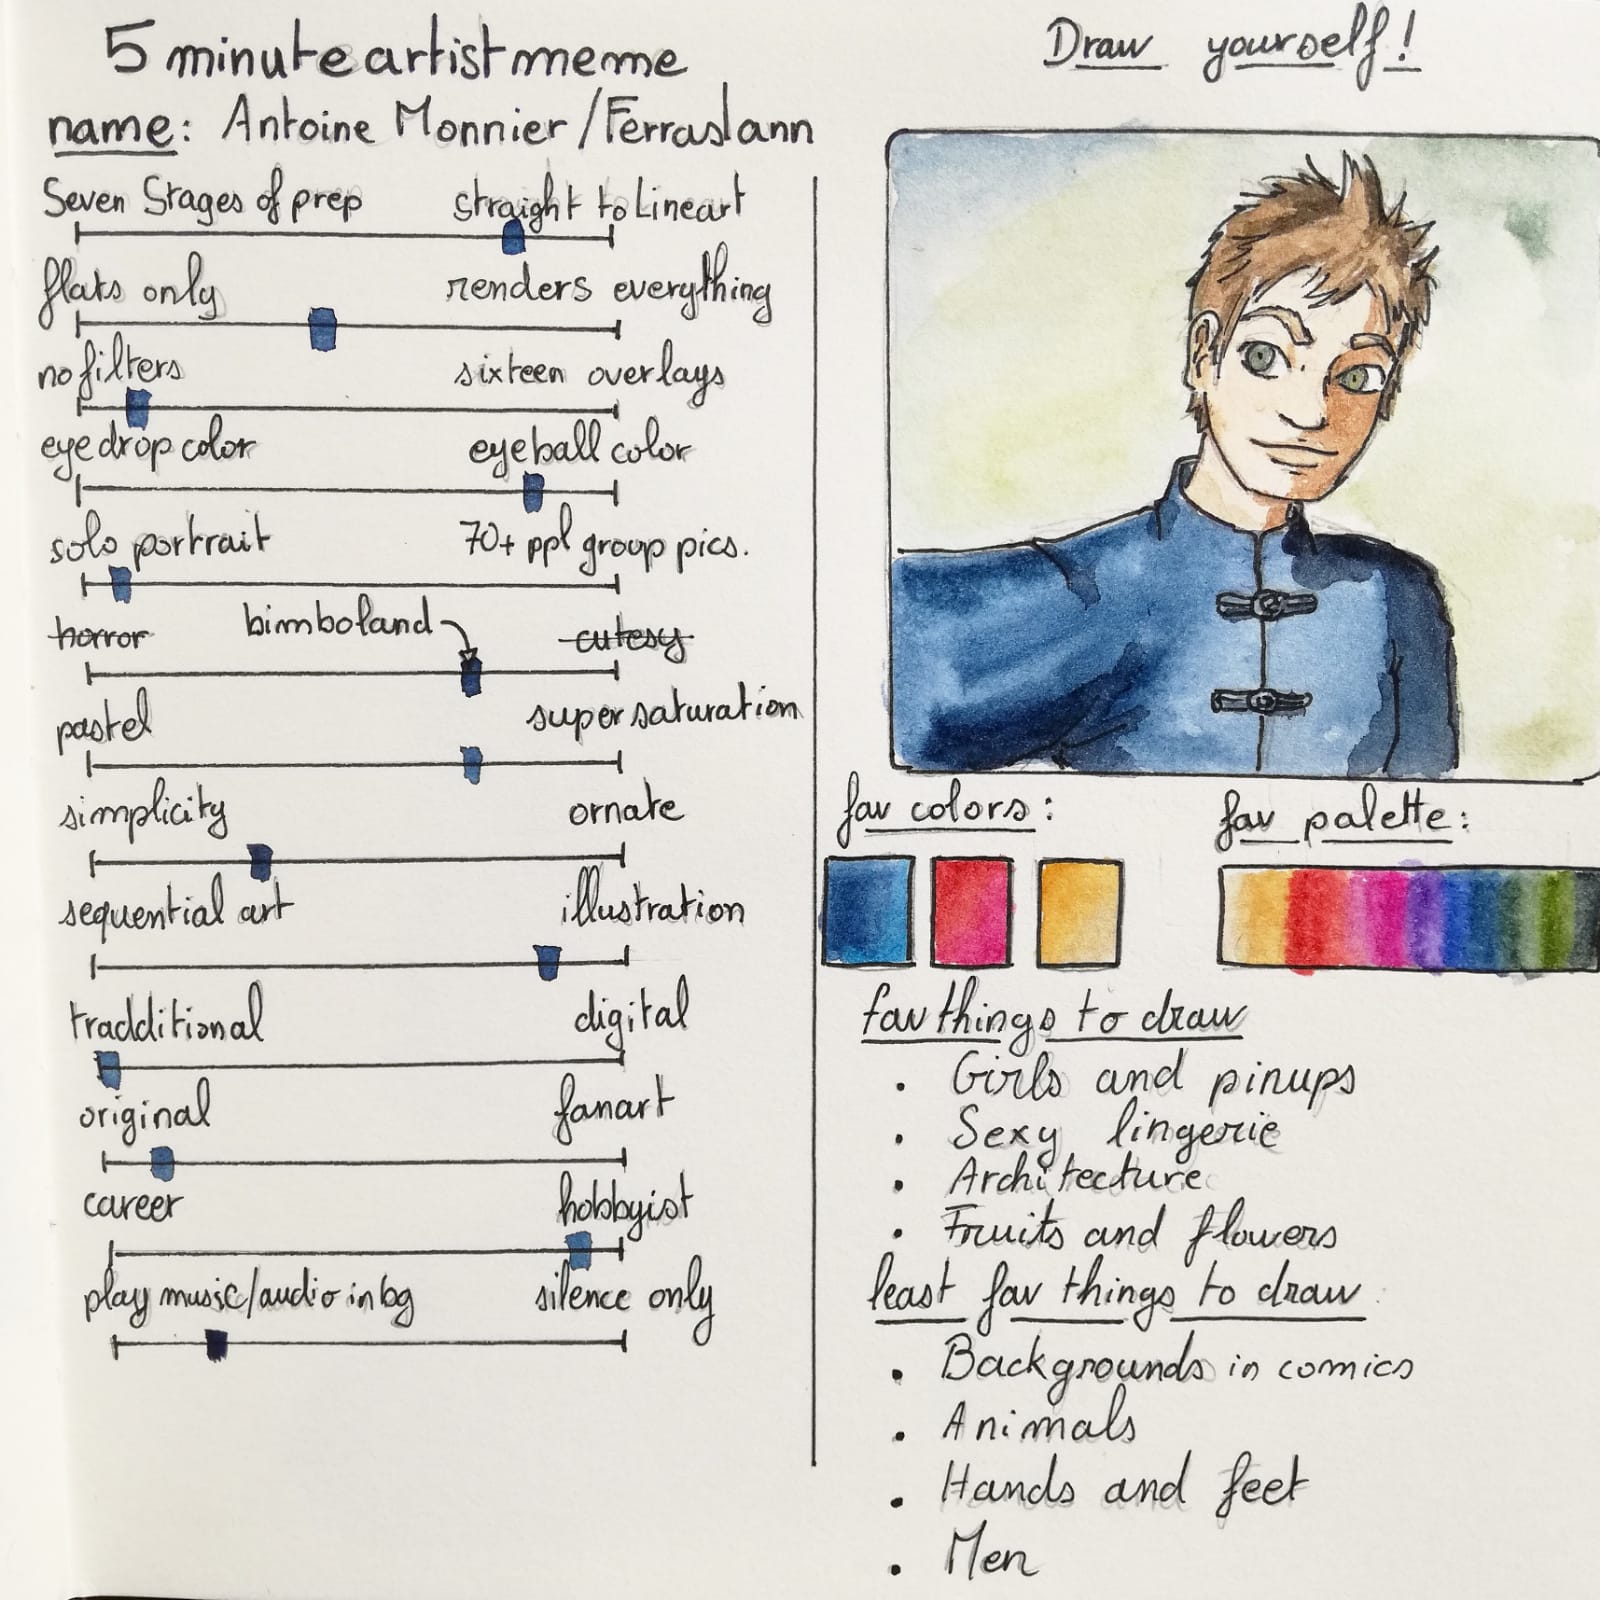 5 minute artist meme
name: Antoine Monnier / Ferraslann
Seven Stages of prep straight to Lineart
flats only renders everything
no filters sixteen overlays
eye drop color eyeball color
solo portrait 70+ ppl group pics.
horror bimboland cutesy
pastel super saturation
simplicity ornate
sequential art illustration
tradditional digital
original fanart
career hobbyist
play music/audio in bg silence only
Draw yourself!
fav colors: fav palette:
fav things to draw
• Girls and pinups
• Sexy lingerie
• Architecture
• Fruits and flowers
least fav things to draw
• Backgrounds in comics
• Animals
• Hands and feet
• Men